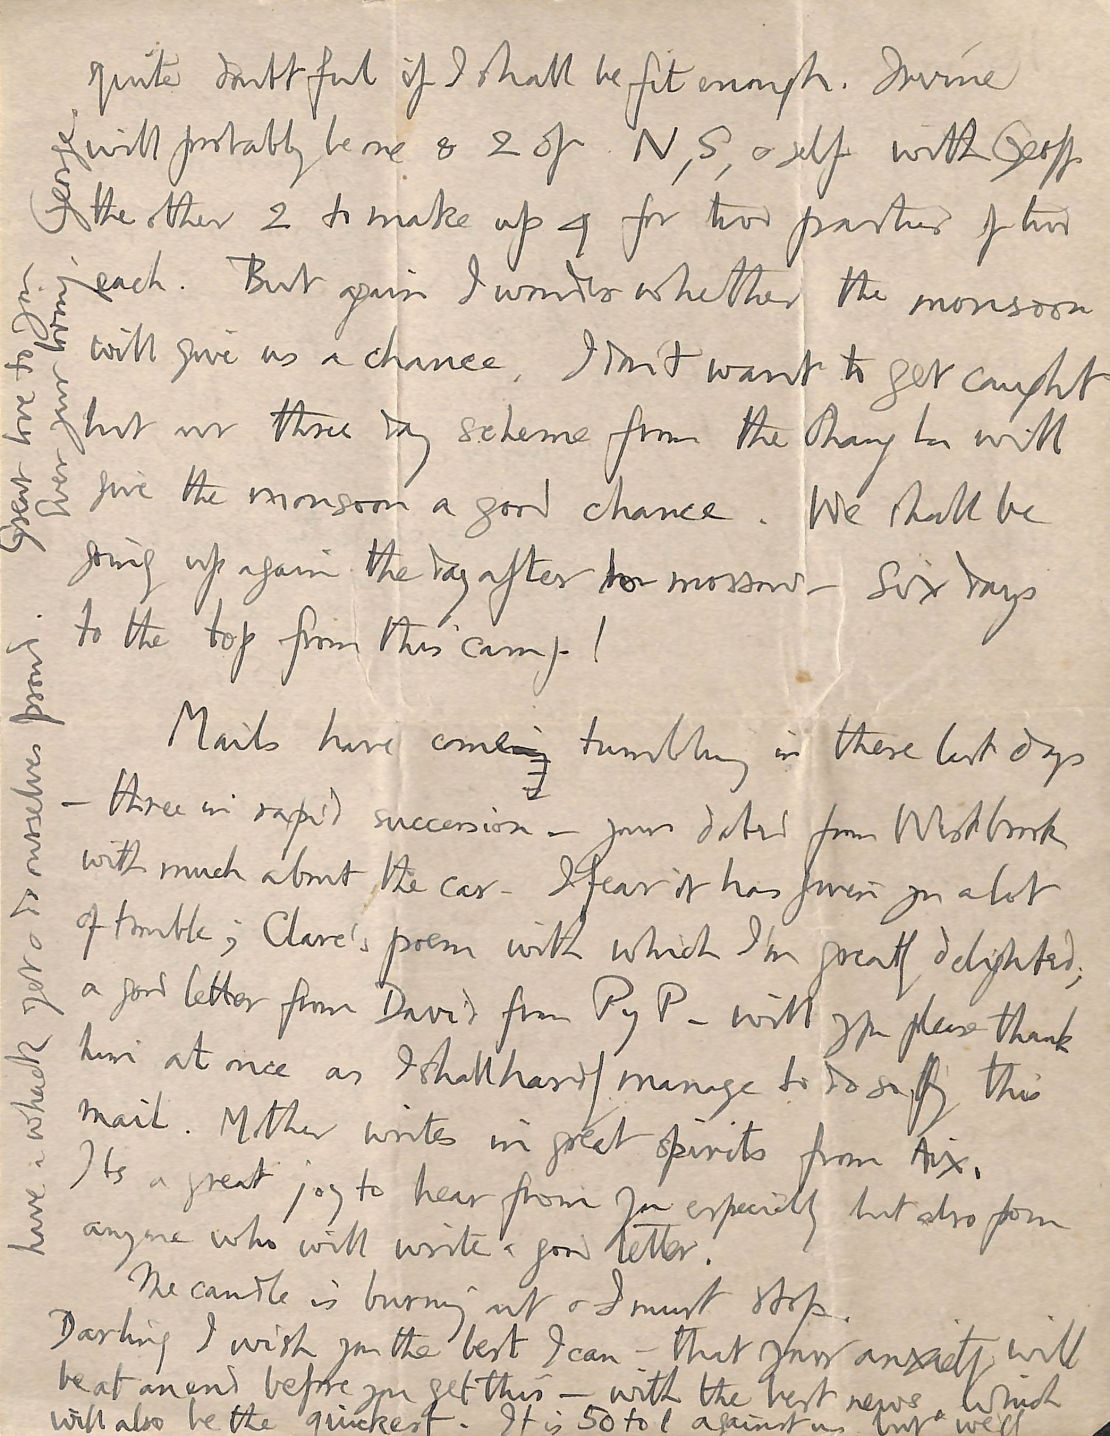 quite doubtful if I shall be fit enough. Irvine
will probably be one & 2 of N, S, & self with Geoff
the other 2 to make up 4 for two parties of two
each. But again I wonder whether the monsoon
will give us a chance. I don't want to get caught
but our three day scheme from the Chang La will
give the monsoon a good chance. We shall be
going up again the day after to morrow - Six days
to the top from this camp!
Mails have come tumbling in these last days
- three in rapid succession - yours dated from Westbrook
with much about the car - I fear it has given you a lot
of trouble; Clare's poem with which I'm greatly delighted;
a good letter from David from P y P - will you please thank
him at once as I shall hardly manage to do so by this
mail. Mother writes in great spirits from Aix.
Its a great joy to hear from you especially but also from
anyone who will write a good letter.
The candle is burning out & I must stop.
Darling I wish you the best I can - that your anxiety will
be at an end before you get this - with the best news. Which
will also be the quickest. It is 50 to 1 against us but we'll
have a whack yet & do ourselves proud.
Great love to you
Ever your loving
George.